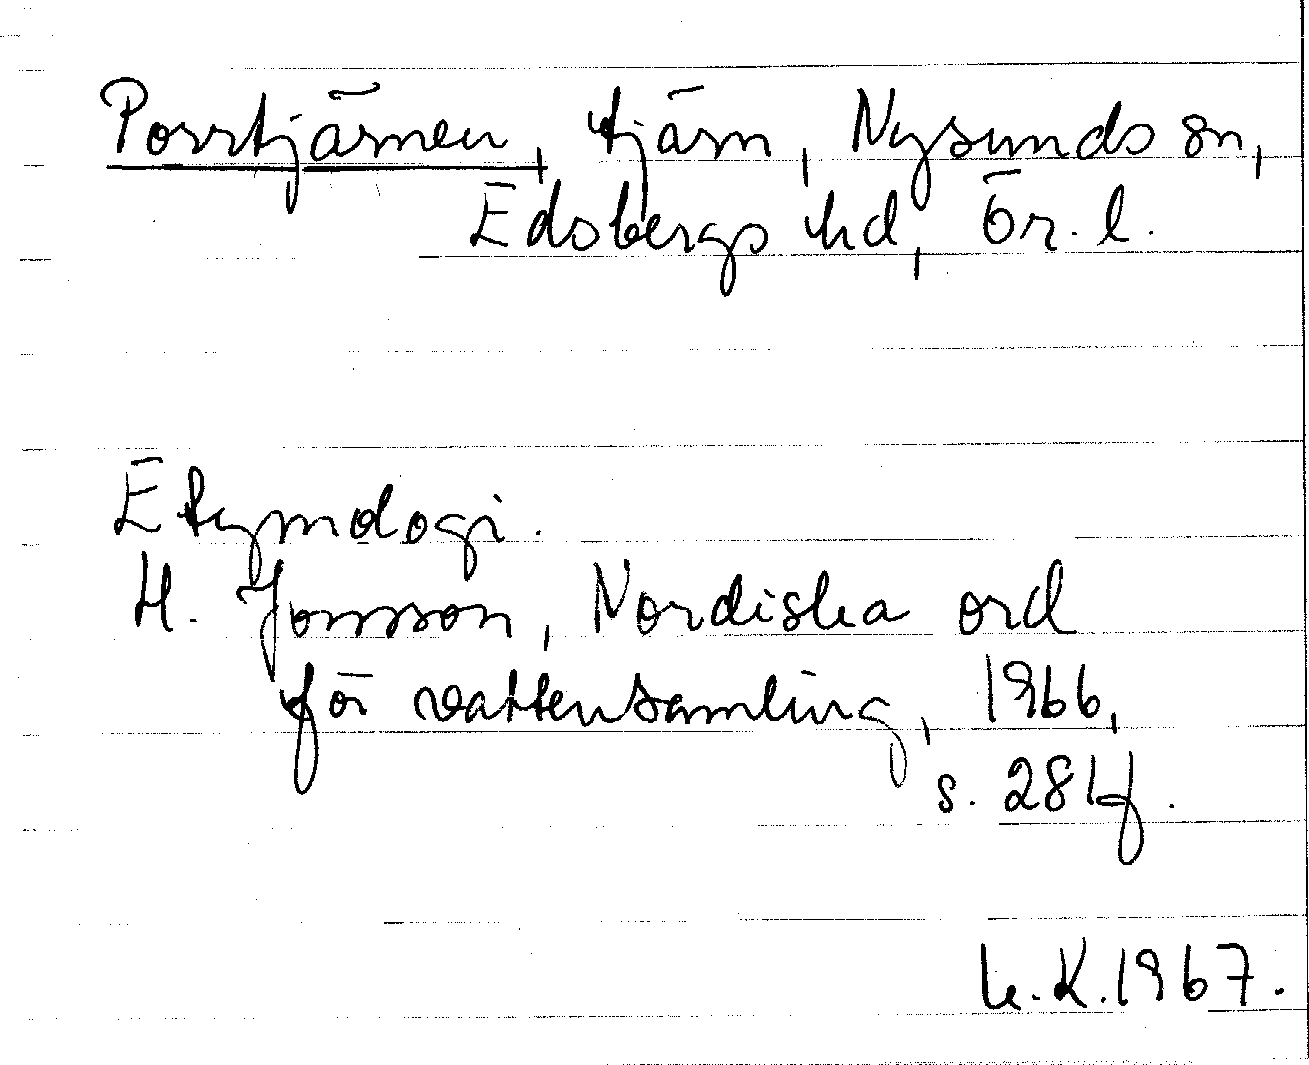 Porrtjärnen, tjärn, Nysunds sn,
Edsbergs hd, Ör. l.
Etymologi.
H. Jonsson, Nordiska ord
för vattensamling, 1966,
s. 281f.
K. K. 1967.